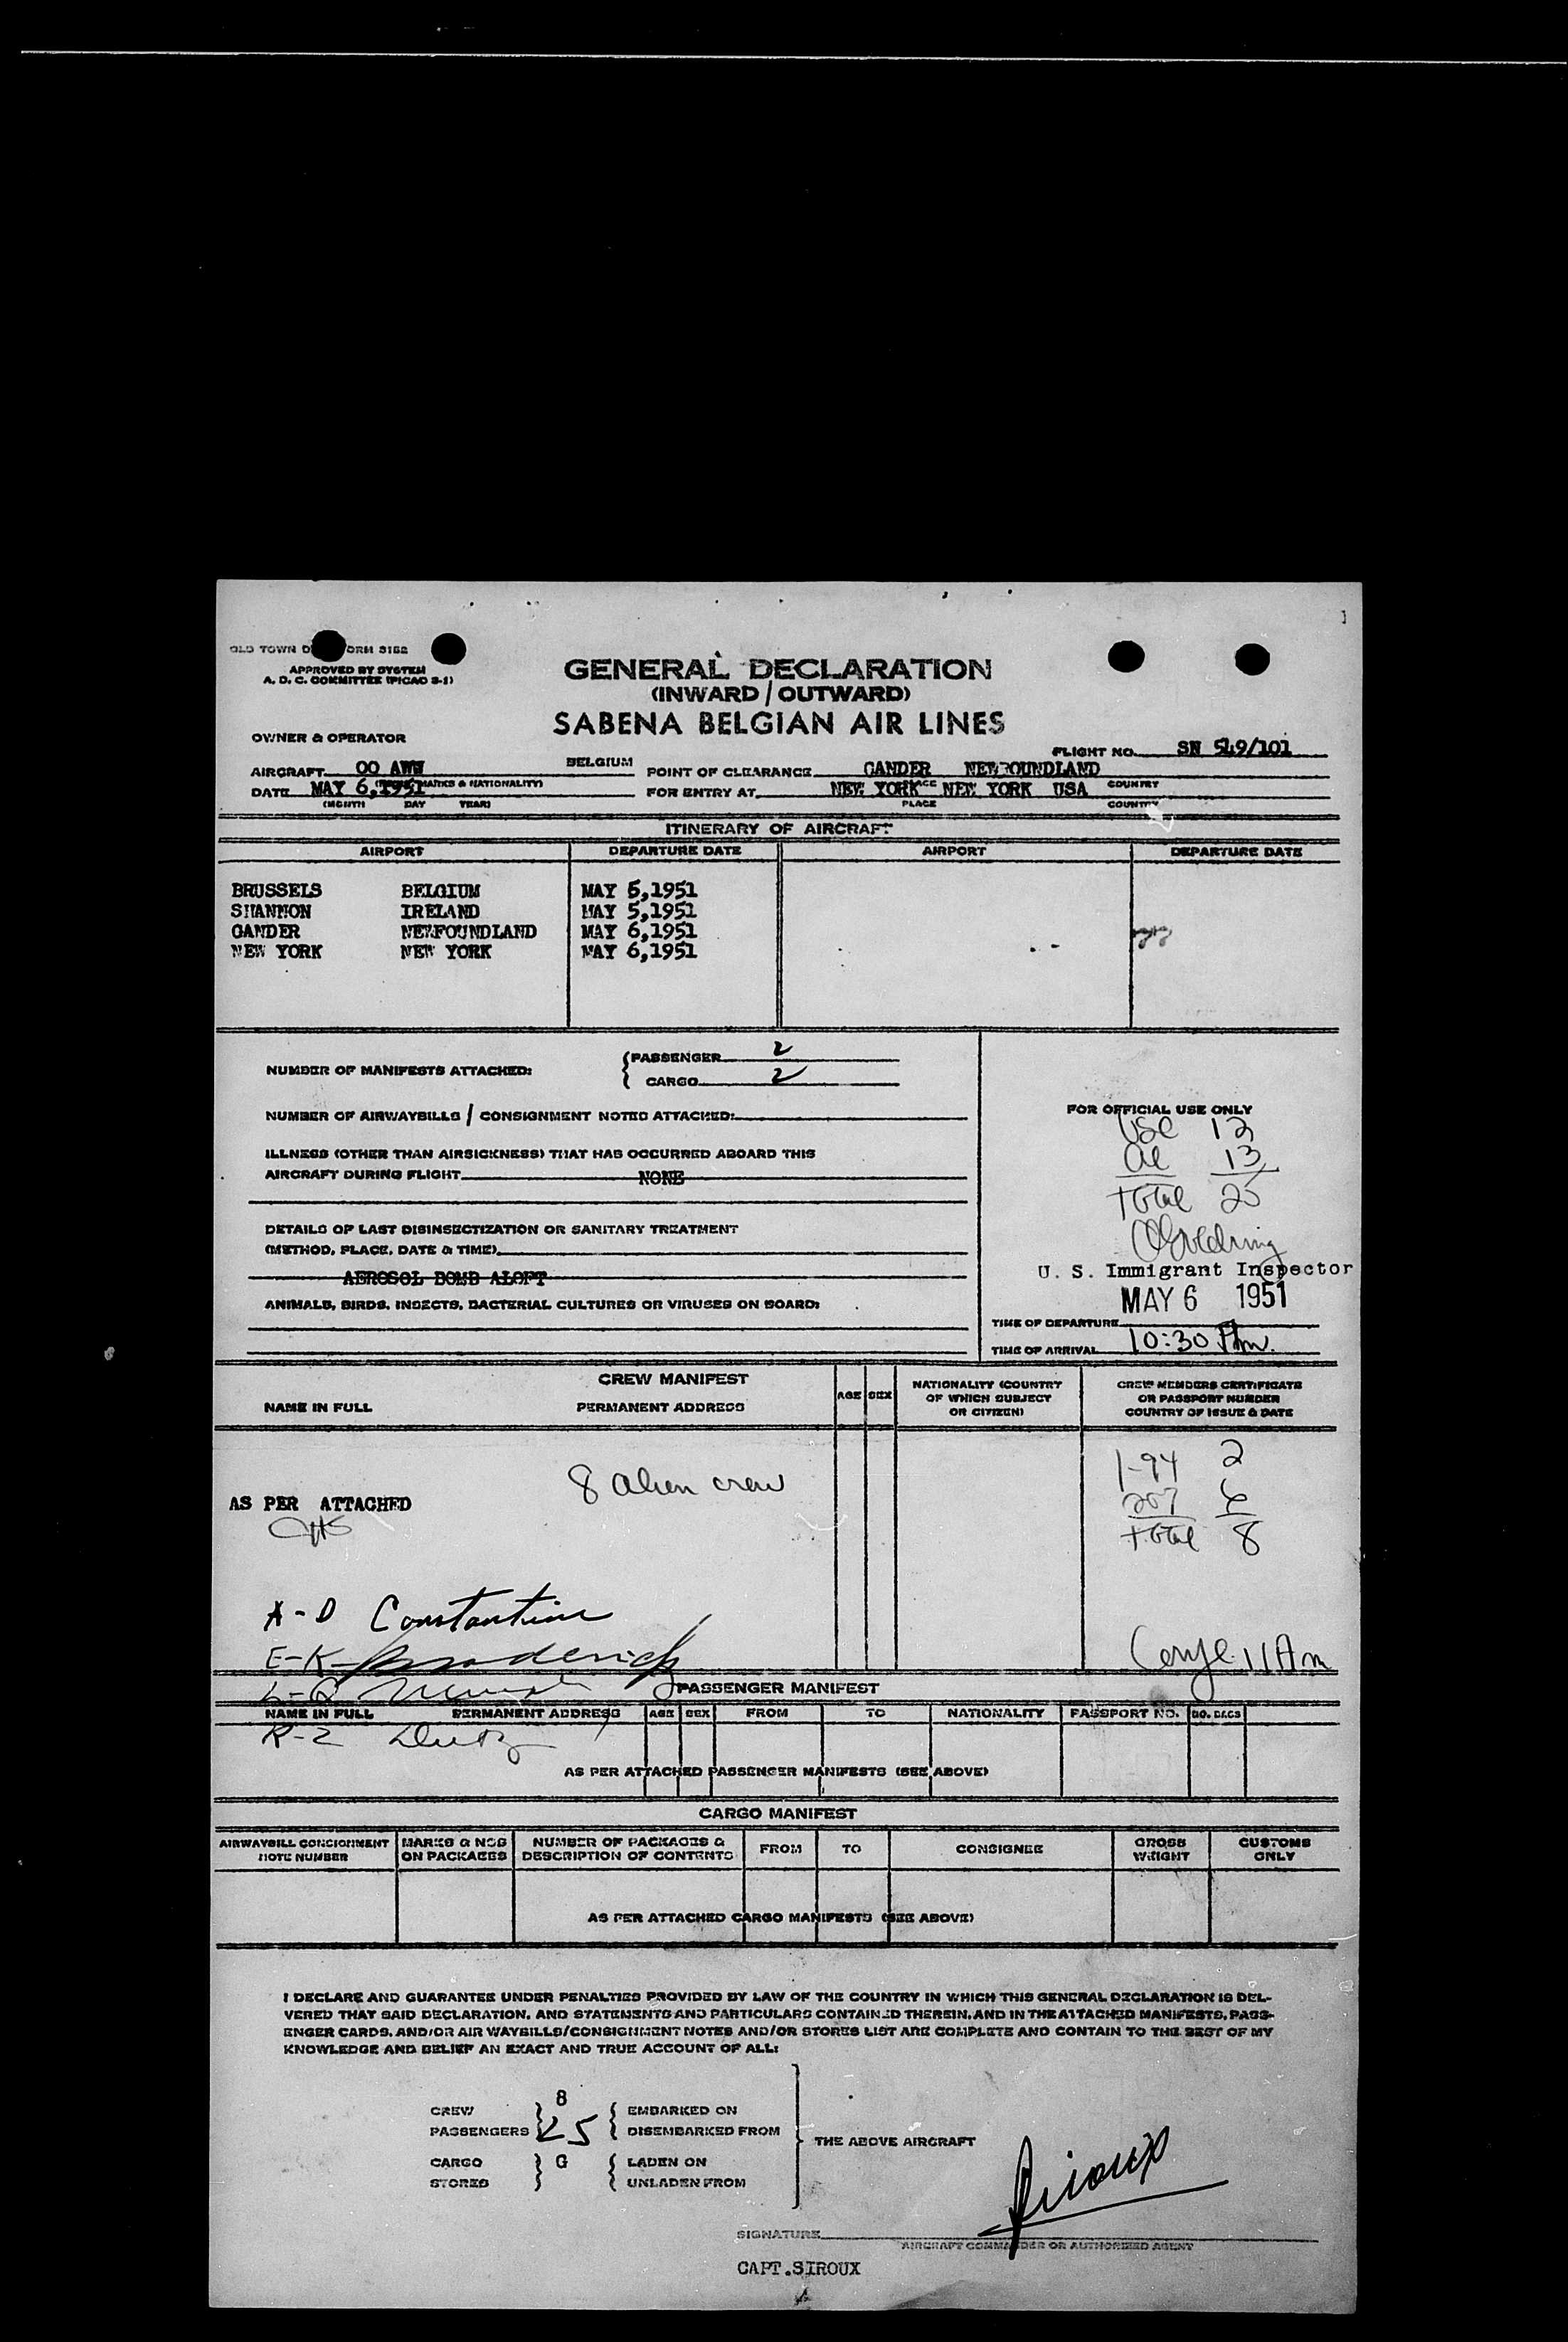 OLD TOWN ORM 3152
APPROVED BY SYSTEM
A. D. C. COMMITTEE (PICAO 2-1)
GENERAL DECLARATION
(INWARD / OUTWARD)
SABENA BELGIAN AIR LINES
OWNER & OPERATOR
FLIGHT NO. SN 549/101
AIRCRAFT OO AWW BELGIUM POINT OF CLEARANCE GANDER NEWFOUNDLAND
(MARKS & NATIONALITY) COUNTRY
DATE MAY 6,1951 FOR ENTRY AT NEW YORK NEW YORK USA
(MONTH DAY YEAR) PLACE COUNTRY
ITINERARY OF AIRCRAFT
AIRPORT DEPARTURE DATE AIRPORT DEPARTURE DATE
BRUSSELS BELGIUM MAY 5,1951
SHANNON IRELAND MAY 5,1951
GANDER NEWFOUNDLAND MAY 6,1951
NEW YORK NEW YORK MAY 6,1951
NUMBER OF MANIFESTS ATTACHED: PASSENGER 2
CARGO 2
NUMBER OF AIRWAYBILLS / CONSIGNMENT NOTES ATTACHED:
ILLNESS (OTHER THAN AIRSICKNESS) THAT HAS OCCURRED ABOARD THIS
AIRCRAFT DURING FLIGHT NONE
DETAILS OF LAST DISINSECTIZATION OR SANITARY TREATMENT
(METHOD, PLACE, DATE & TIME)
AEROSOL BOMB ALOFT
ANIMALS, BIRDS, INSECTS, BACTERIAL CULTURES OR VIRUSES ON BOARD:
FOR OFFICIAL USE ONLY
USC 12
al 13
total 25
U. S. Immigrant Inspector
MAY 6 1951
TIME OF DEPARTURE
TIME OF ARRIVAL 10:30 Am.
CREW MANIFEST
NAME IN FULL PERMANENT ADDRESS AGE SEX NATIONALITY (COUNTRY OF WHICH SUBJECT OR CITIZEN) CREW MEMBERS CERTIFICATE OR PASSPORT NUMBER COUNTRY OF ISSUE & DATE
8 alien crew
AS PER ATTACHED
1-94 2
257 6
total 8
A-D Constantine
E-K- Broderick
11 Am
PASSENGER MANIFEST
NAME IN FULL PERMANENT ADDRESS AGE SEX FROM TO NATIONALITY PASSPORT NO. NO. BAGS
R-Z
AS PER ATTACHED PASSENGER MANIFESTS (SEE ABOVE)
CARGO MANIFEST
AIRWAYBILL CONSIGNMENT NOTE NUMBER MARKS & NOS ON PACKAGES NUMBER OF PACKAGES & DESCRIPTION OF CONTENTS FROM TO CONSIGNEE GROSS WEIGHT CUSTOMS ONLY
AS PER ATTACHED CARGO MANIFESTS (SEE ABOVE)
I DECLARE AND GUARANTEE UNDER PENALTIES PROVIDED BY LAW OF THE COUNTRY IN WHICH THIS GENERAL DECLARATION IS DEL-
VERED THAT SAID DECLARATION, AND STATEMENTS AND PARTICULARS CONTAINED THEREIN, AND IN THE ATTACHED MANIFESTS, PASS-
ENGER CARDS, AND/OR AIR WAYBILLS/CONSIGNMENT NOTES AND/OR STORES LIST ARE COMPLETE AND CONTAIN TO THE BEST OF MY
KNOWLEDGE AND BELIEF AN EXACT AND TRUE ACCOUNT OF ALL:
CREW 8 EMBARKED ON
PASSENGERS 25 DISEMBARKED FROM
THE ABOVE AIRCRAFT
CARGO G LADEN ON
STORES UNLADEN FROM
Siroux
SIGNATURE
AIRCRAFT COMMANDER OR AUTHORIZED AGENT
CAPT.SIROUX